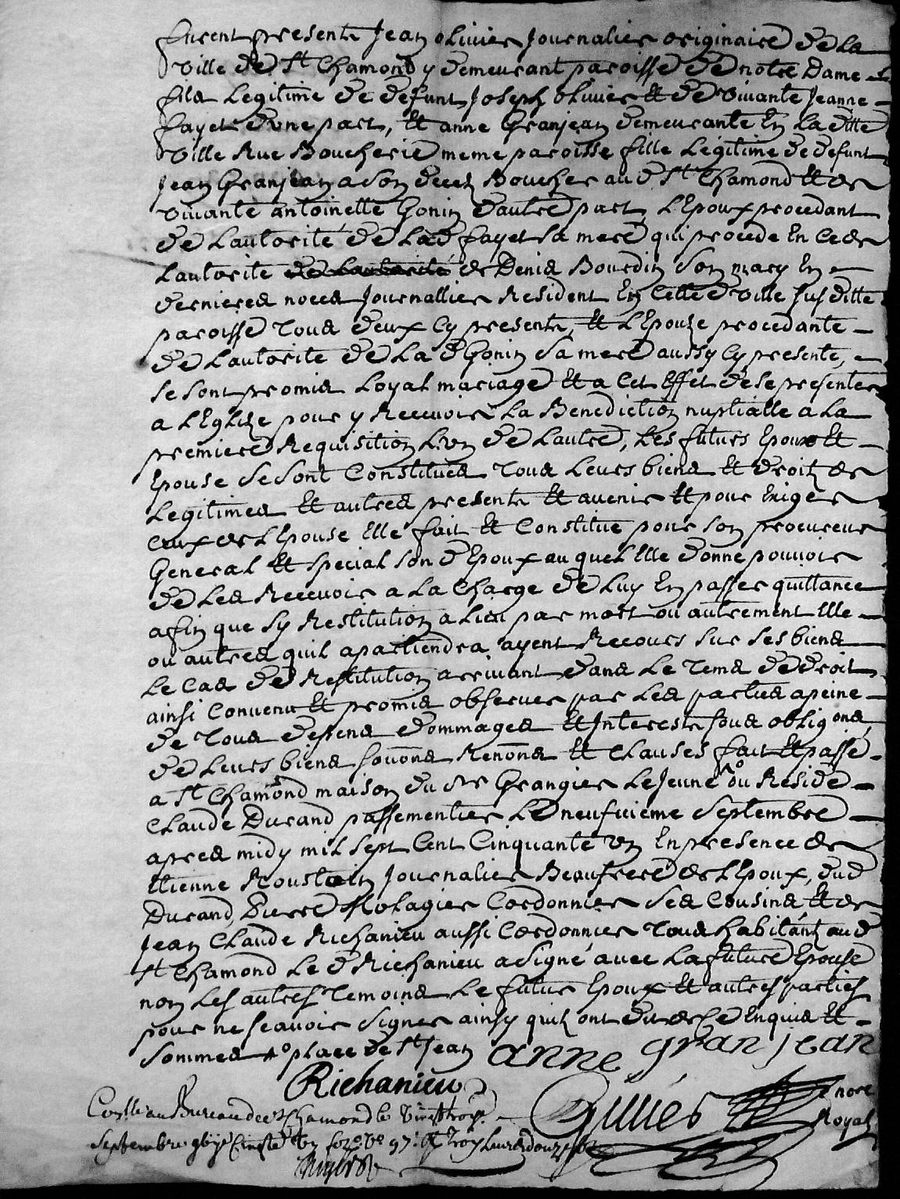 furent presents Jean olivier Journalier originaire de la
ville de St Chamond y demeurant paroisse de notre Dame
fils Legitime de defunt Joseph olivier et de vivante Jeanne
fayet d'une part, et anne Granjean demeurante En la ditte
ville Rue Boucherie meme paroisse fille Legitime de defunt
Jean Granjean a son deced Boucher aud St Chamond et de
vivante antoinette Gonin d'autre part L'Epoux procedant
de Lautorité de Lad fayet sa mere qui procede En ce de
Lautorite de Lautorité de Denis Bourdin son mary En
dernieres noces Journallier Resident En cette d ville susditte
paroisse Tous deux cy presents, et L'Epouze procedante
de Lautorite de La d Gonin sa mere aussy cy presente,
se sont promis Loyal mariage et a cet Effet de se presenter
a L'Eglize pour y Recevoir La Benediction nuptialle a La
premiere Requisition L'un de Lautre, Les futurs Epoux et
Epouse se sont Constitués Tous Leurs biens et droits de
Legitimes et autres presents et avenir et pour Exiger
ceux de L'Epouse Elle fait et Constitue pour son procureur
General et special son d Epoux au quel Elle donne pouvoir
de Les Recevoir a La Charge de Luy En passer quittance
afin que sy Restitution a Lieu par mort ou autrement Elle
ou autres quil apartiendra ayent Recours sur ses biens
Le Cas de Restitution arrivant dans Le Tems de droit
ainsi Convenu et promis observer par Les parties a peine
de Tous depens dommages et Interests sous obligons
de Leurs biens soums Renons et Clauses fait et passé
a St Chamond maison du sr Grangier Le Jeune ou Reside
Claude Durand passementier Le neufvieme septembre
apres midy mil sept Cent Cinquante un En presence de
Etienne Journalier Beaufrere de L'Epoux, dud
Durand, Pierre Cordonnier ses Cousins et de
Jean Claude Richanieu aussi Cordonnier Tous habitants aud
St Chamond Le d Richanieu a signé avec La future Epouse
non Les autres Temoins Le futur Epoux et autres parties
pour ne scavoir signer ainsy quils ont dit de ce Enquis et
sommes place de St Jean anne granjean
Richanieu
Gillier nore
Royal
au Bureau de st chamond le vingt trois
septembre